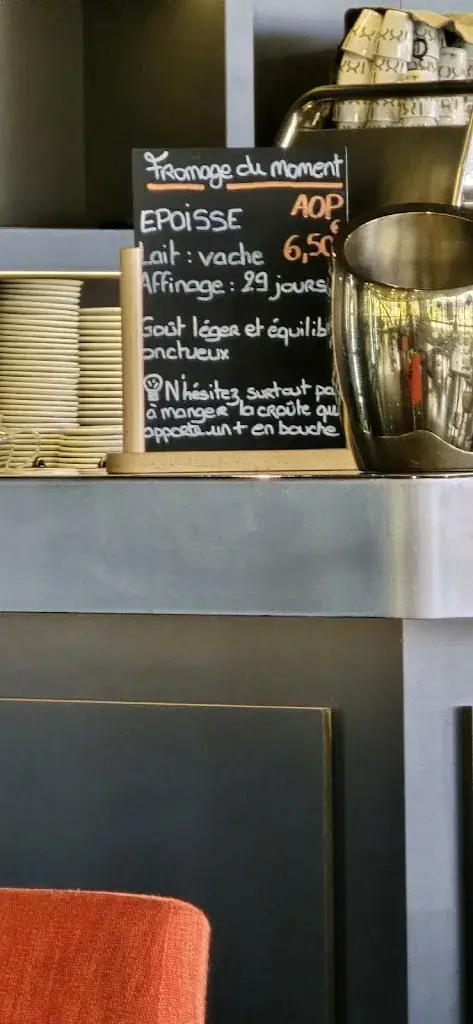 Fromage du moment
EPOISSE AOP
Lait : vache 6,50€
Affinage : 29 jours
Goût léger et équilib
onctueux
N'hésitez surtout pa
à manger la croûte qui
apporte un + en bouche